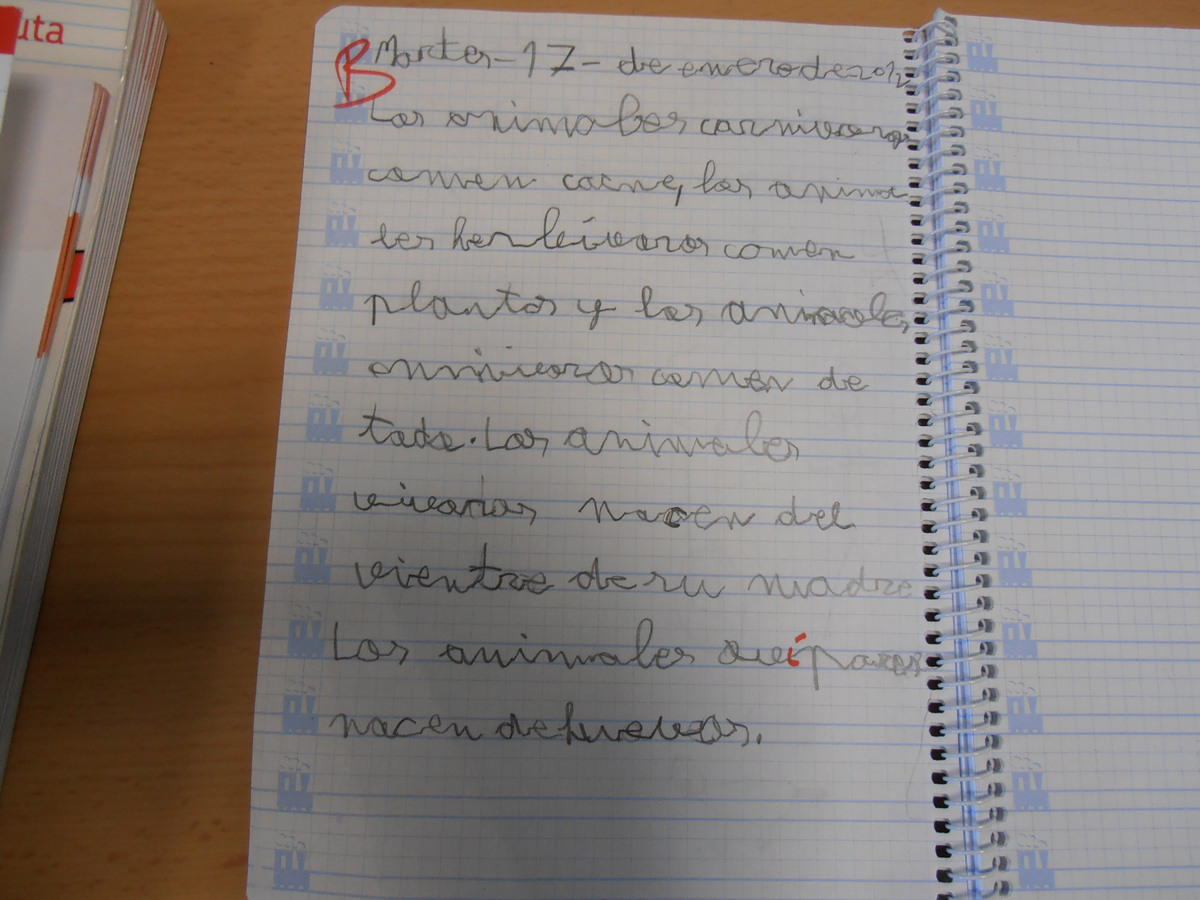 uta
B Martes-17-de enero de 2012
Los animales carnivoros
comen carne, los anima
les herbívoros comen
plantas y los animales
omnivoros comen de
todo. Los animales
viviparos nacen del
vientre de su madre
Los animales ovíparos
nacen de huevos.